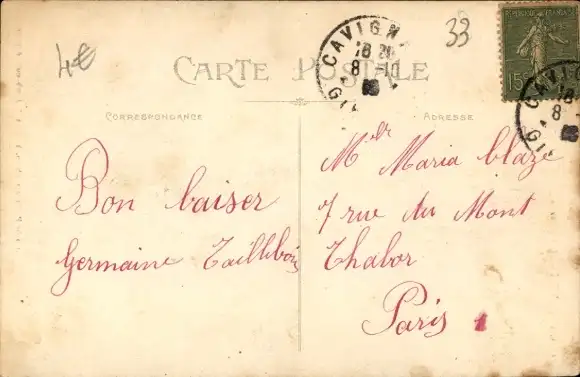 4€
33
CARTE POSTALE
CAVIGN
18 20
8 -10
GI
REPUBLIQUE FRANCAISE
15
CAVIG
18
8
GI
CORRESPONDANCE
ADRESSE
Bon baiser
Germaine Taillebois
Melle Maria Claze
7 rue du Mont
Thabor
Paris 1